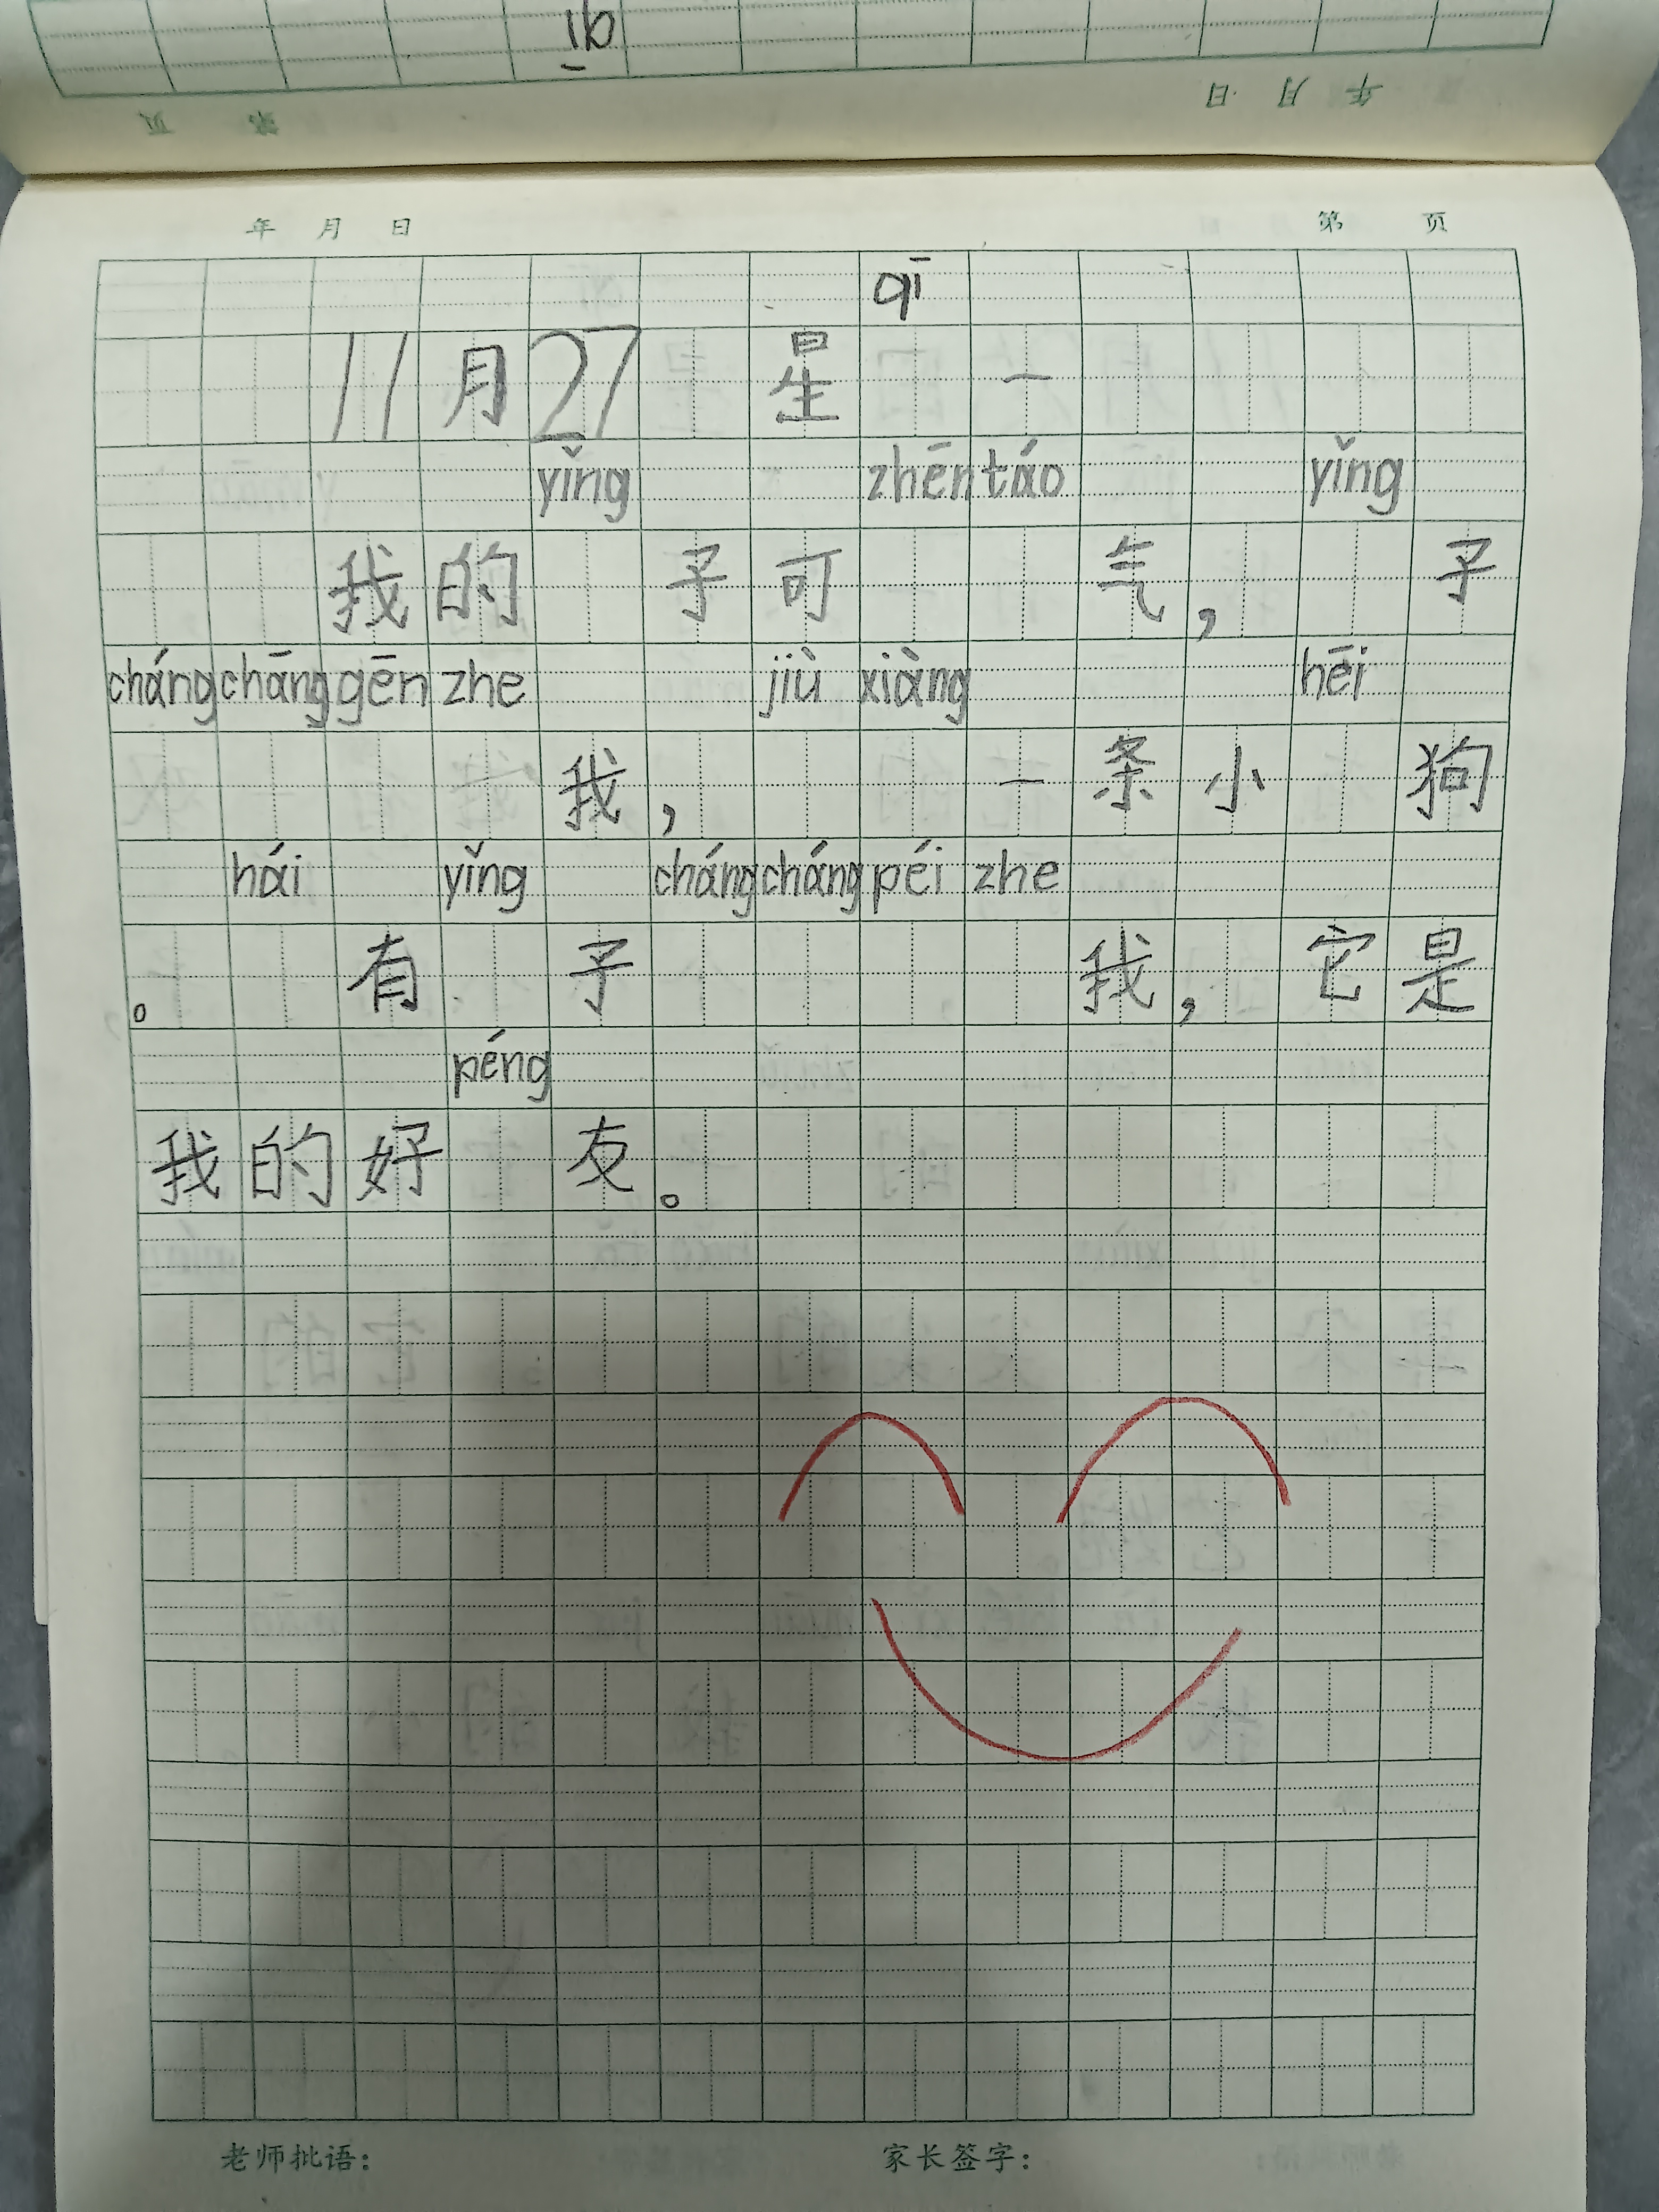 ib
年 月 日
第 页
年 月 日 第 页
qī
11月27 星 一
yǐng zhēn táo yǐng
我的 子可 气， 子
cháng chāng gēn zhe jiù xiàng hēi
我， 一条小 狗
hái yǐng cháng cháng péi zhe
。 有 子 我，它是
péng
我的好 友。
老师批语： 家长签字：